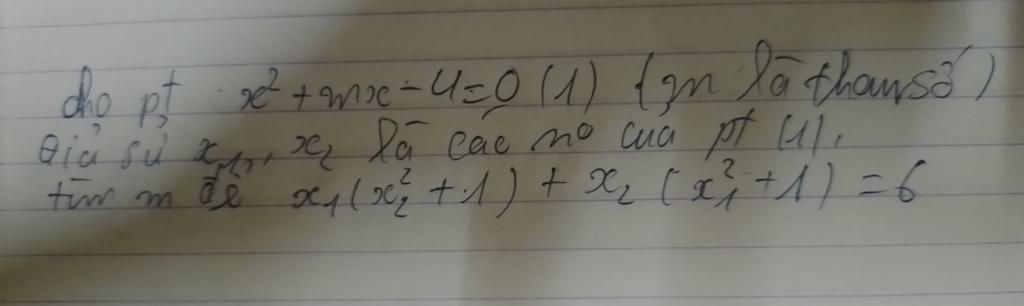 cho pt x² + mx - 4 = 0 (1) (m là tham số)
Giả sử x₁, x₂ là các no của pt (1).
tìm m để x₁(x₂² + 1) + x₂(x₁² + 1) = 6